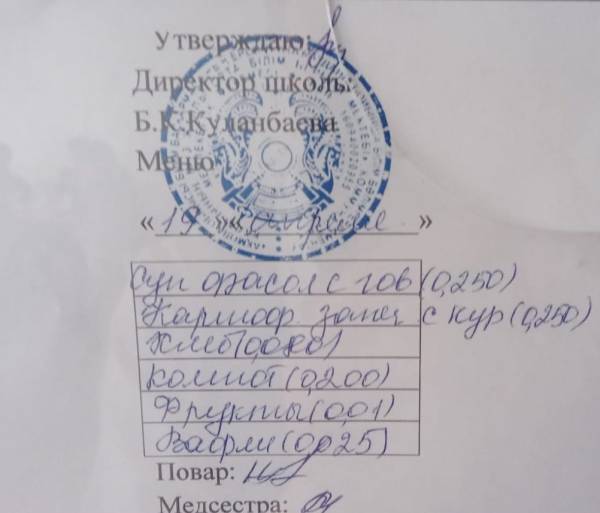 Утверждаю:
Директор школы:
Б.К.Куданбаева
Меню
«19» «апреле»
Суп фасол с гов (0,250)
Картоф. запек с кур (0,250)
Хлеб (0,080)
компот (0,200)
Фрукты (0,01)
Вафли (0,025)
Повар:
Медсестра: